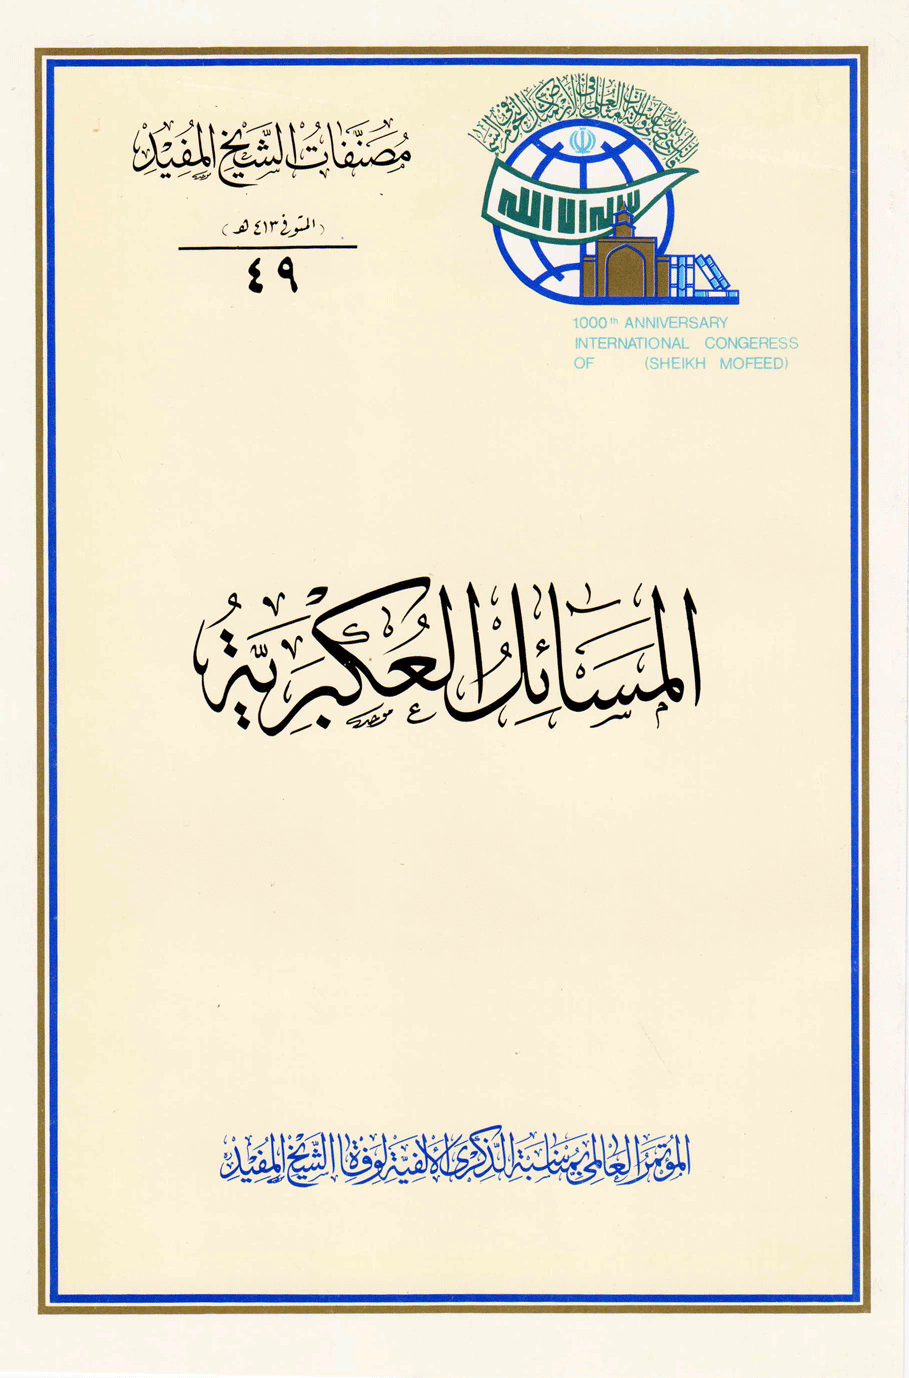 مُصَنَّفَاتُ الشَّيْخِ المُفِيْدِ
(المتوفى ٤١٣ هـ)
٤٩
لا إله إلا الله
1000th ANNIVERSARY
INTERNATIONAL CONGERESS
OF (SHEIKH MOFEED)
المَسَائِلُ العُكْبَرِيَّةُ
المُؤتَمَرُ العَالَمِيُّ بِمُنَاسَبَةِ الذِّكْرَى الأَلْفِيَّةِ لِوَفَاةِ الشَّيْخِ المُفِيْدِ